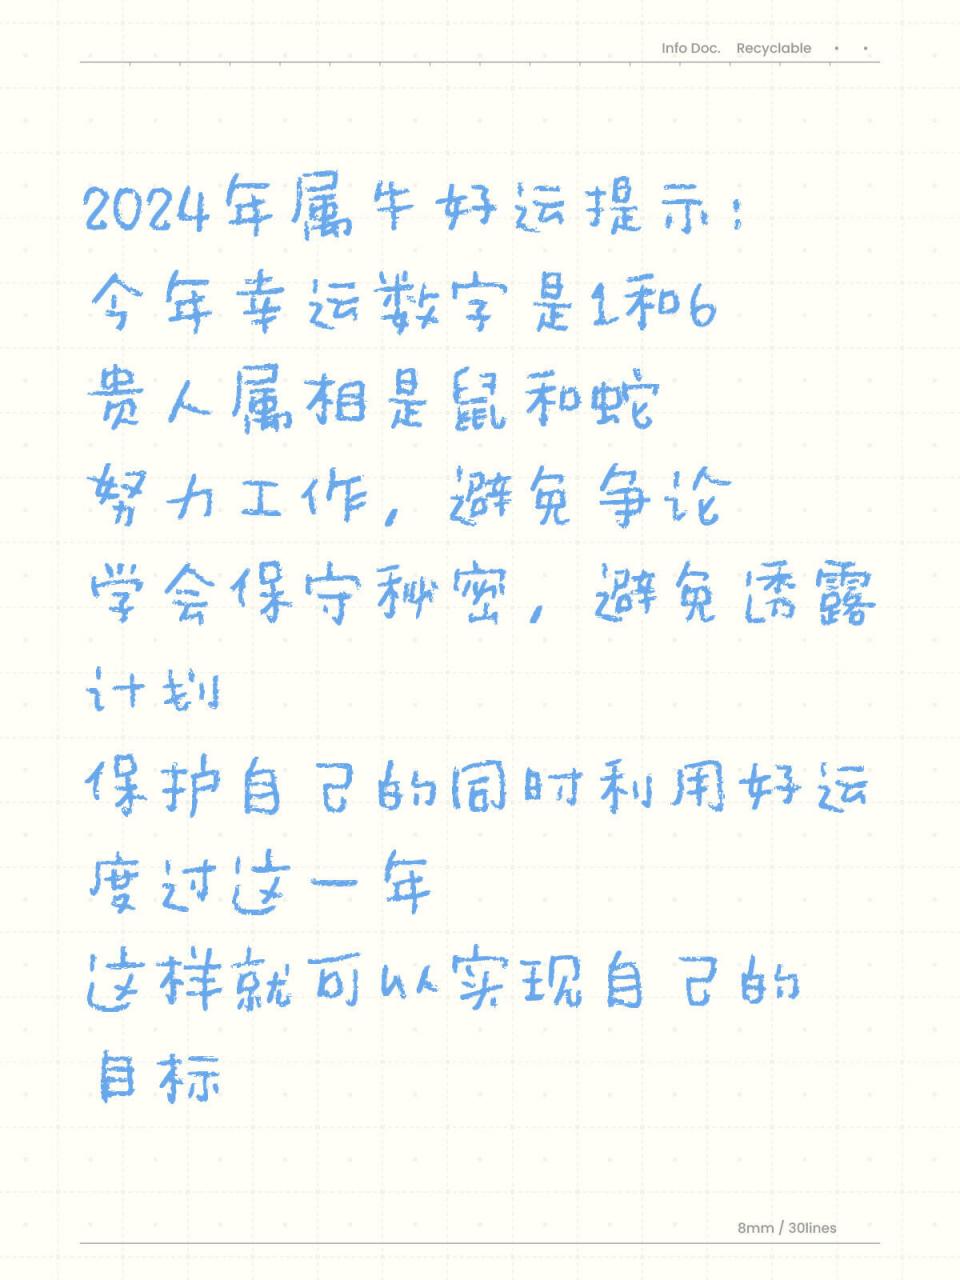 Info Doc. Recyclable
2024年属牛好运提示:
今年幸运数字是1和6
贵人属相是鼠和蛇
努力工作，避免争论
学会保守秘密，避免透露
计划
保护自己的同时利用好运
度过这一年
这样就可以实现自己的
目标
8mm / 30lines